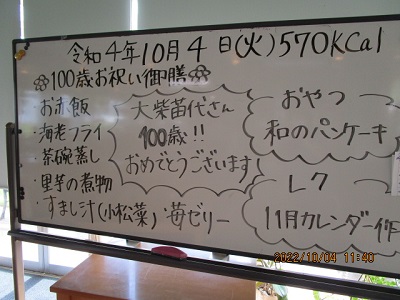 令和4年10月4日(火)570KCal
100歳お祝い御膳
・お赤飯
・海老フライ
・茶碗蒸し
・里芋の煮物
・すまし汁(小松菜)・苺ゼリー
大柴苗代さん
100歳!!
おめでとうございます
おやつ
和のパンケーキ
レク
11月カレンダー作
2022/10/04 11:40